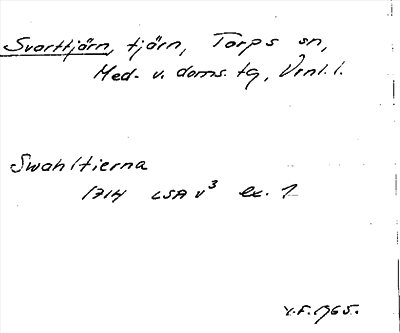 Svarttjärn, tjärn, Torps sn,
Med. v. doms. tg, Vnl. l.
Swahltierna
1714 LSA v³ ex. 1
Y.F. 1965.